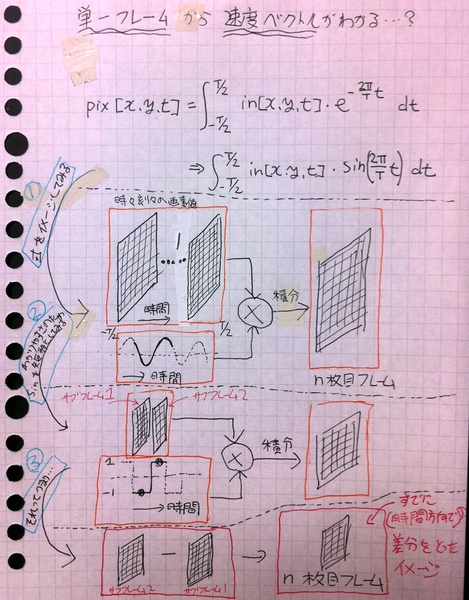 単一フレームから速度ベクトルがわかる…?
pix[x,y,t] = ∫_{-T/2}^{T/2} in[x,y,t]・e^{-2π/T t} dt
⇒ ∫_{-T/2}^{T/2} in[x,y,t]・sin(2π/T t) dt
① 式をイメージしてみる
時々刻々の画素値
時間
-T/2
T/2
時間
×
積分
n枚目フレーム
②
sinを矩形としてみる
サブフレーム1
サブフレーム2
1
-1
時間
×
積分
③ それってつまり…
サブフレーム2
−
サブフレーム1
n枚目フレーム
すでに
(時間方向で)
差分をとった
イメージ